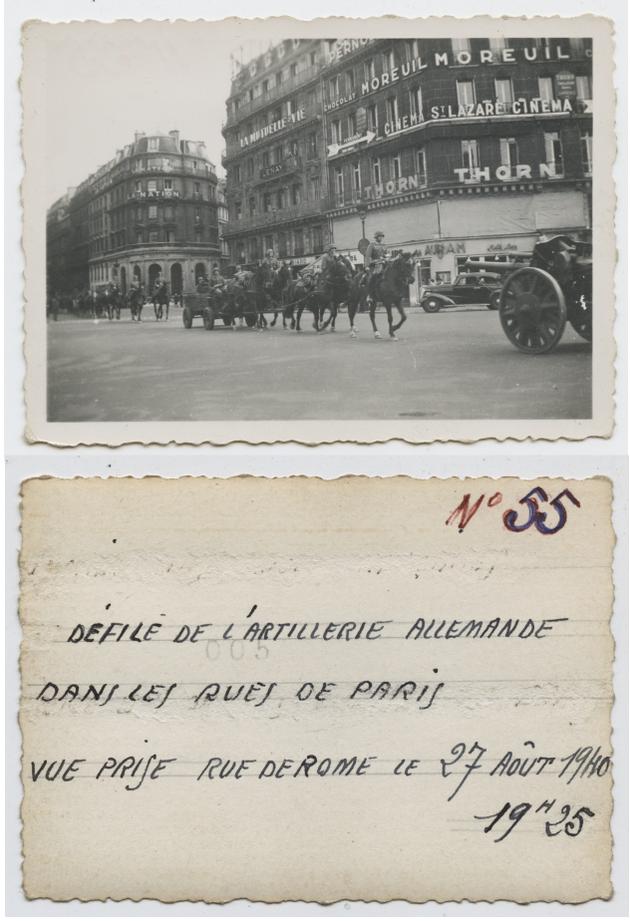 PERNOD
MOREUIL
CHOCOLAT MOREUIL
CINEMA ST LAZARE CINEMA
LA MUTUELLE-VIE
THORN
THORN
NATION
N° 55
DÉFILÉ DE L'ARTILLERIE ALLEMANDE
005
DANS LES RUES DE PARIS
VUE PRISE RUE DE ROME LE 27 AOÛT 1940
19H25